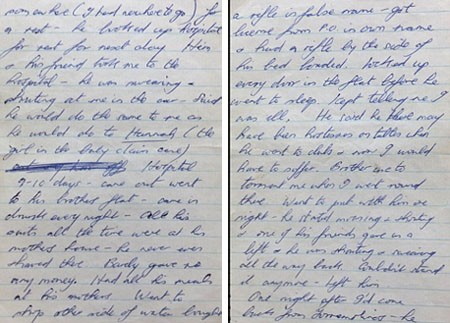 (I had nowhere to go) for
a rest - he booked up hospital
for rest for next day. Him
& his friend took me to the
hospital - he was swearing &
shouting at me in the car - said
he would do the same to me as
he would do to Hannah (the
girl in the Baby Clair case)
Hospital
9-10 days - came out went
to his brothers flat - came in
drunk every night - All his
suits all the time were at his
mothers home - he never even
shaved there. Barely gave me
any money. Had all his meals
at his mothers. Went to
shop other side of water bought
a rifle in false name - got
license from P.O. in own name
& had a rifle by the side of
his bed loaded. Locked up
every door in the flat before he
went to sleep. Kept telling me I
was ill. He said he may
have been hostesses on tables when
he went to clubs & now I would
have to suffer. Brother use to
torment me when I went round
there. Went to pub with him one
night - he started moaning & shouting
& one of his friends gave us a
lift & he was shouting & swearing
all the way back. Couldn't stand
it anymore - left him
One night after I'd come
back from somewhere - he